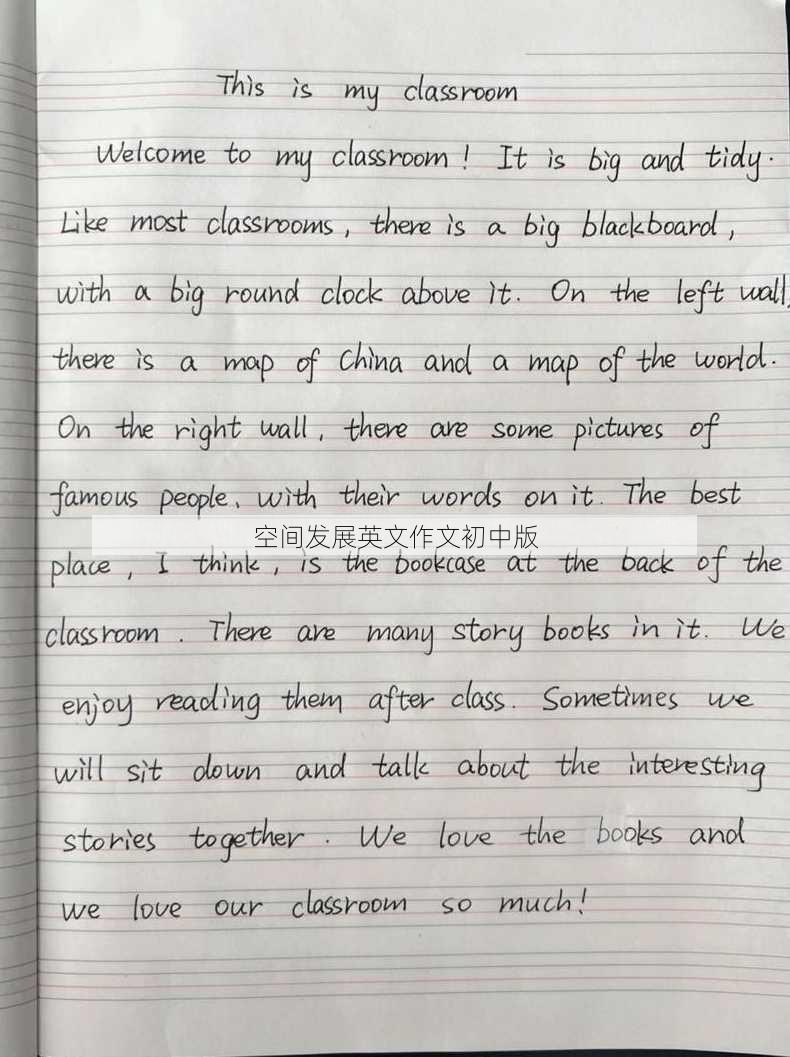 This is my classroom
Welcome to my classroom! It is big and tidy.
Like most classrooms, there is a big blackboard,
with a big round clock above it. On the left wall,
there is a map of China and a map of the world.
On the right wall, there are some pictures of
famous people, with their words on it. The best
空间发展英文作文初中版
place, I think, is the bookcase at the back of the
classroom. There are many story books in it. We
enjoy reading them after class. Sometimes we
will sit down and talk about the interesting
stories together. We love the books and
we love our classroom so much!